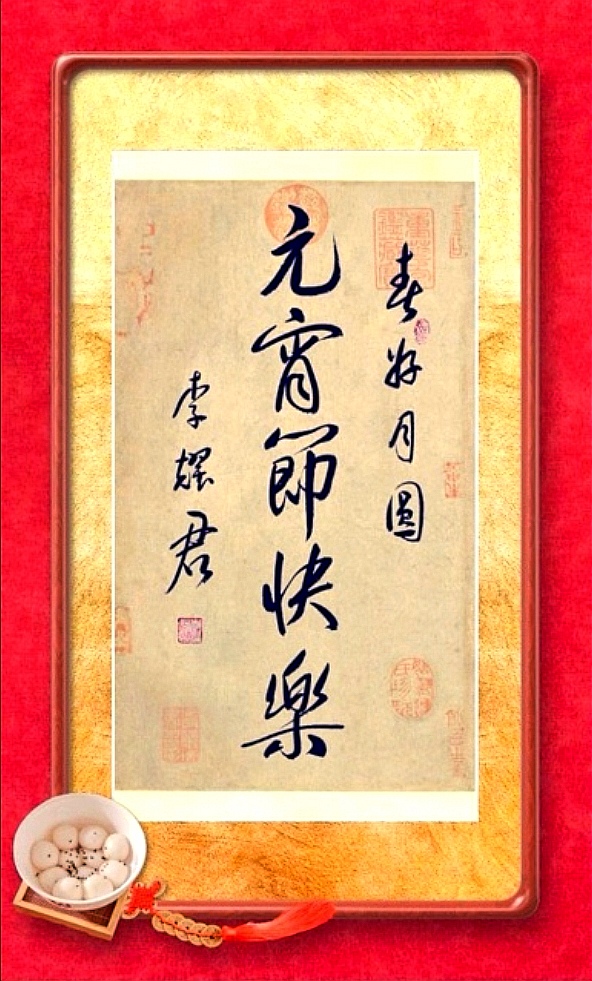 春好月圓
元宵節快樂
李耀君